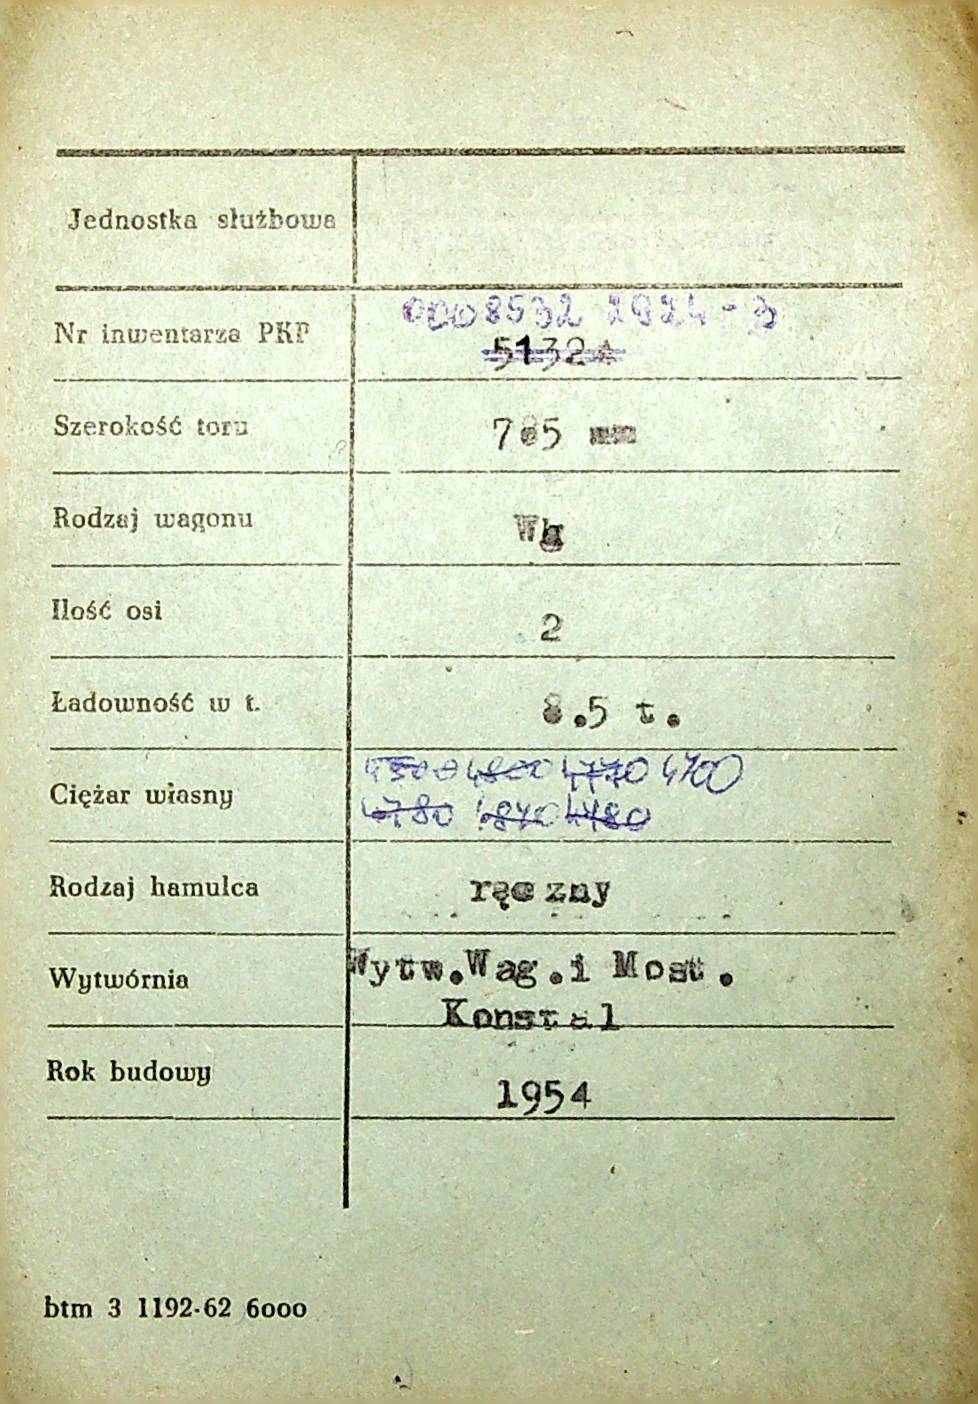 Jednostka służbowa
Nr inwentarza PKP 0008532 1924-3
5132
Szerokość toru 785 mm
Rodzaj wagonu Wg
Ilość osi 2
Ładowność w t. 8.5 t.
Ciężar własny 4500 4800 4770 4700
4780 4840 4480
Rodzaj hamulca ręczny
Wytwórnia Wytw.Wag.i Most.
Konstal
Rok budowy 1954
btm 3 1192-62 6000